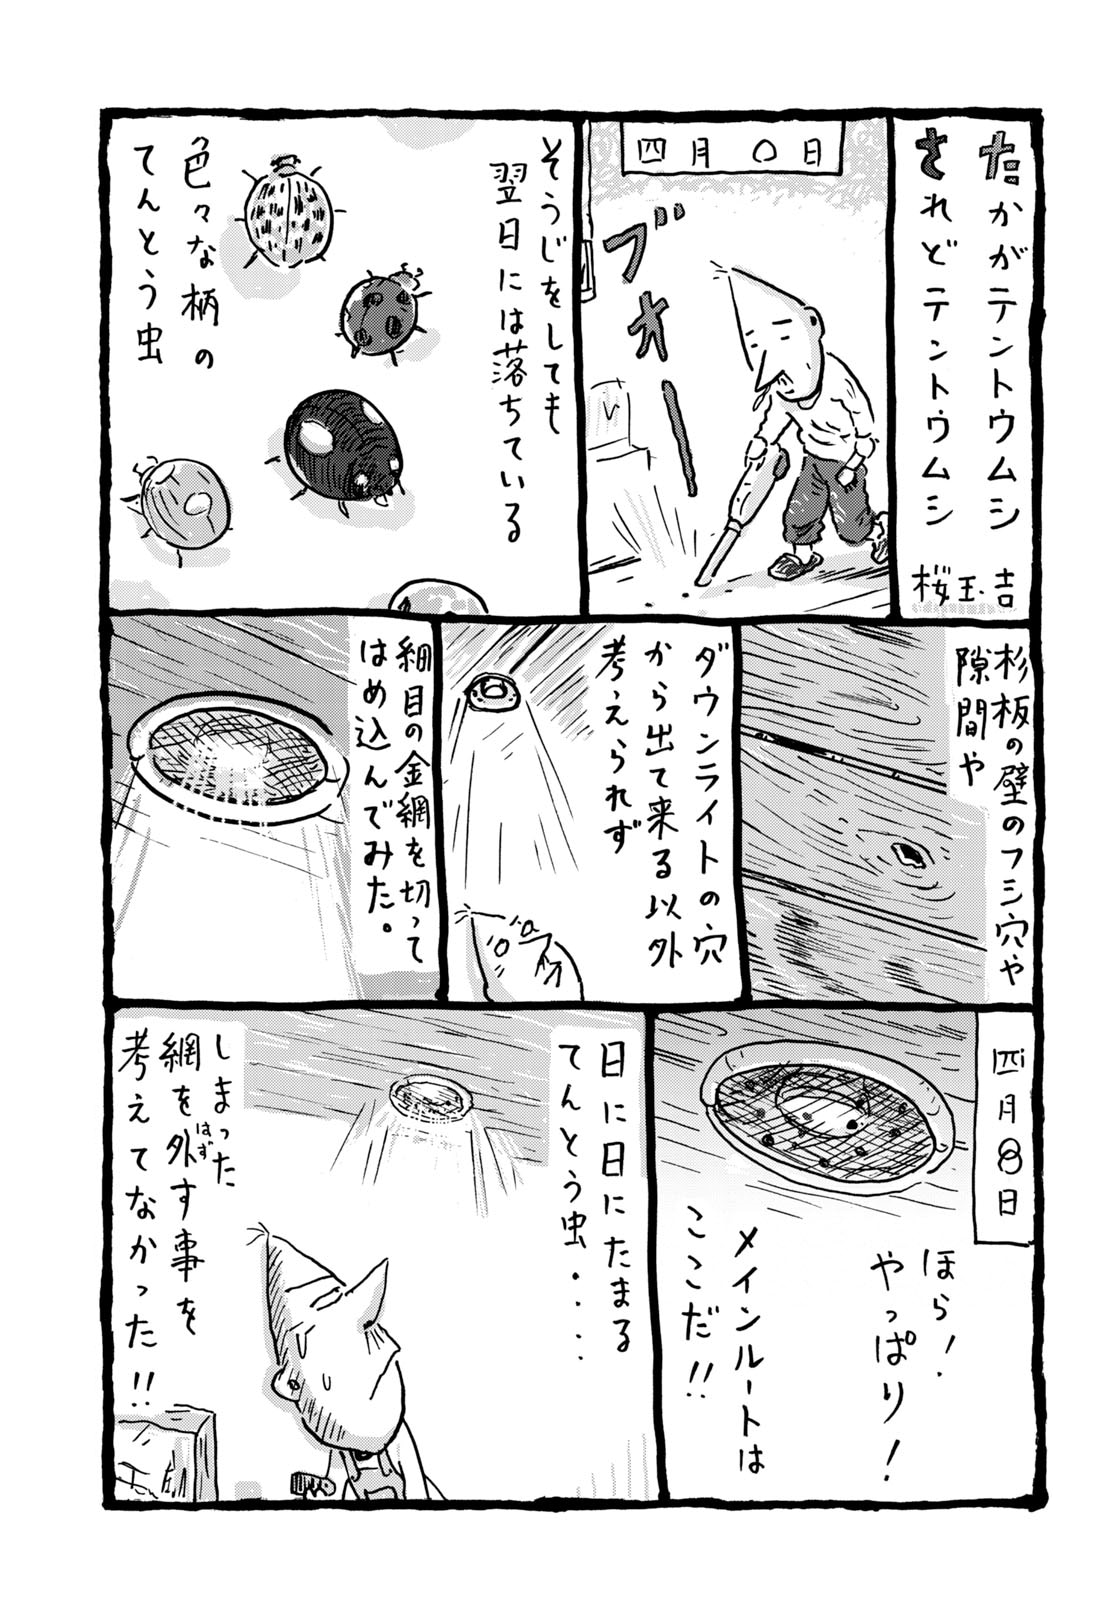 たかがテントウムシ
されどテントウムシ
桜玉吉
四月〇日
ブオー
そうじをしても
翌日には落ちている
色々な柄の
てんとう虫
杉板の壁のフシ穴や
隙間や
ダウンライトの穴
から出て来る以外
考えられず
細目の金網を切って
はめ込んでみた。
四月8日
ほら!
やっぱり!
メインルートは
ここだ!!
日に日にたまる
てんとう虫・・・・
しまった
網を外す事を
はず
考えてなかった!!